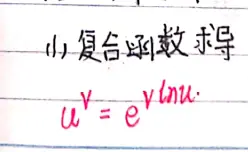 (1) 复合函数求导
u^v = e^{v ln u}.